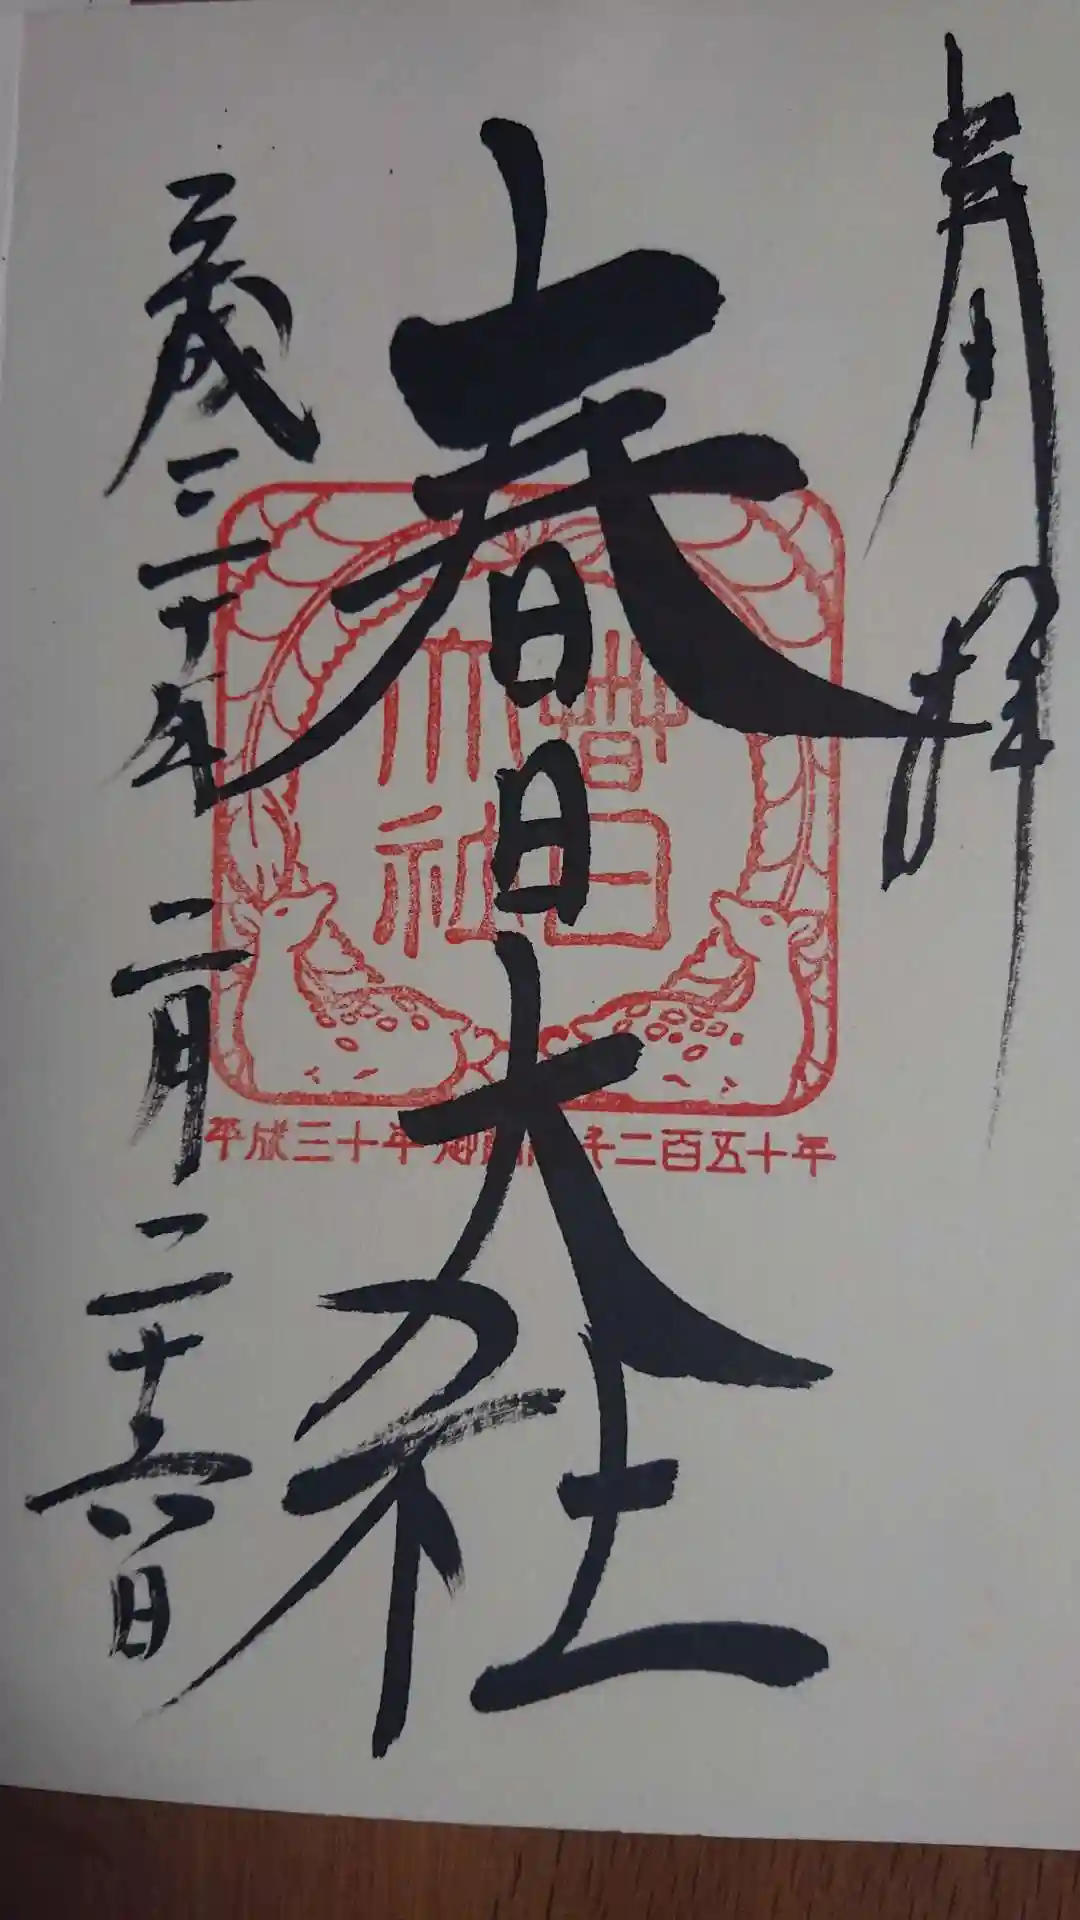 奉拝
春日大社
平成三十年二月二十六日
春日
大社
平成三十年 御創建千二百五十年